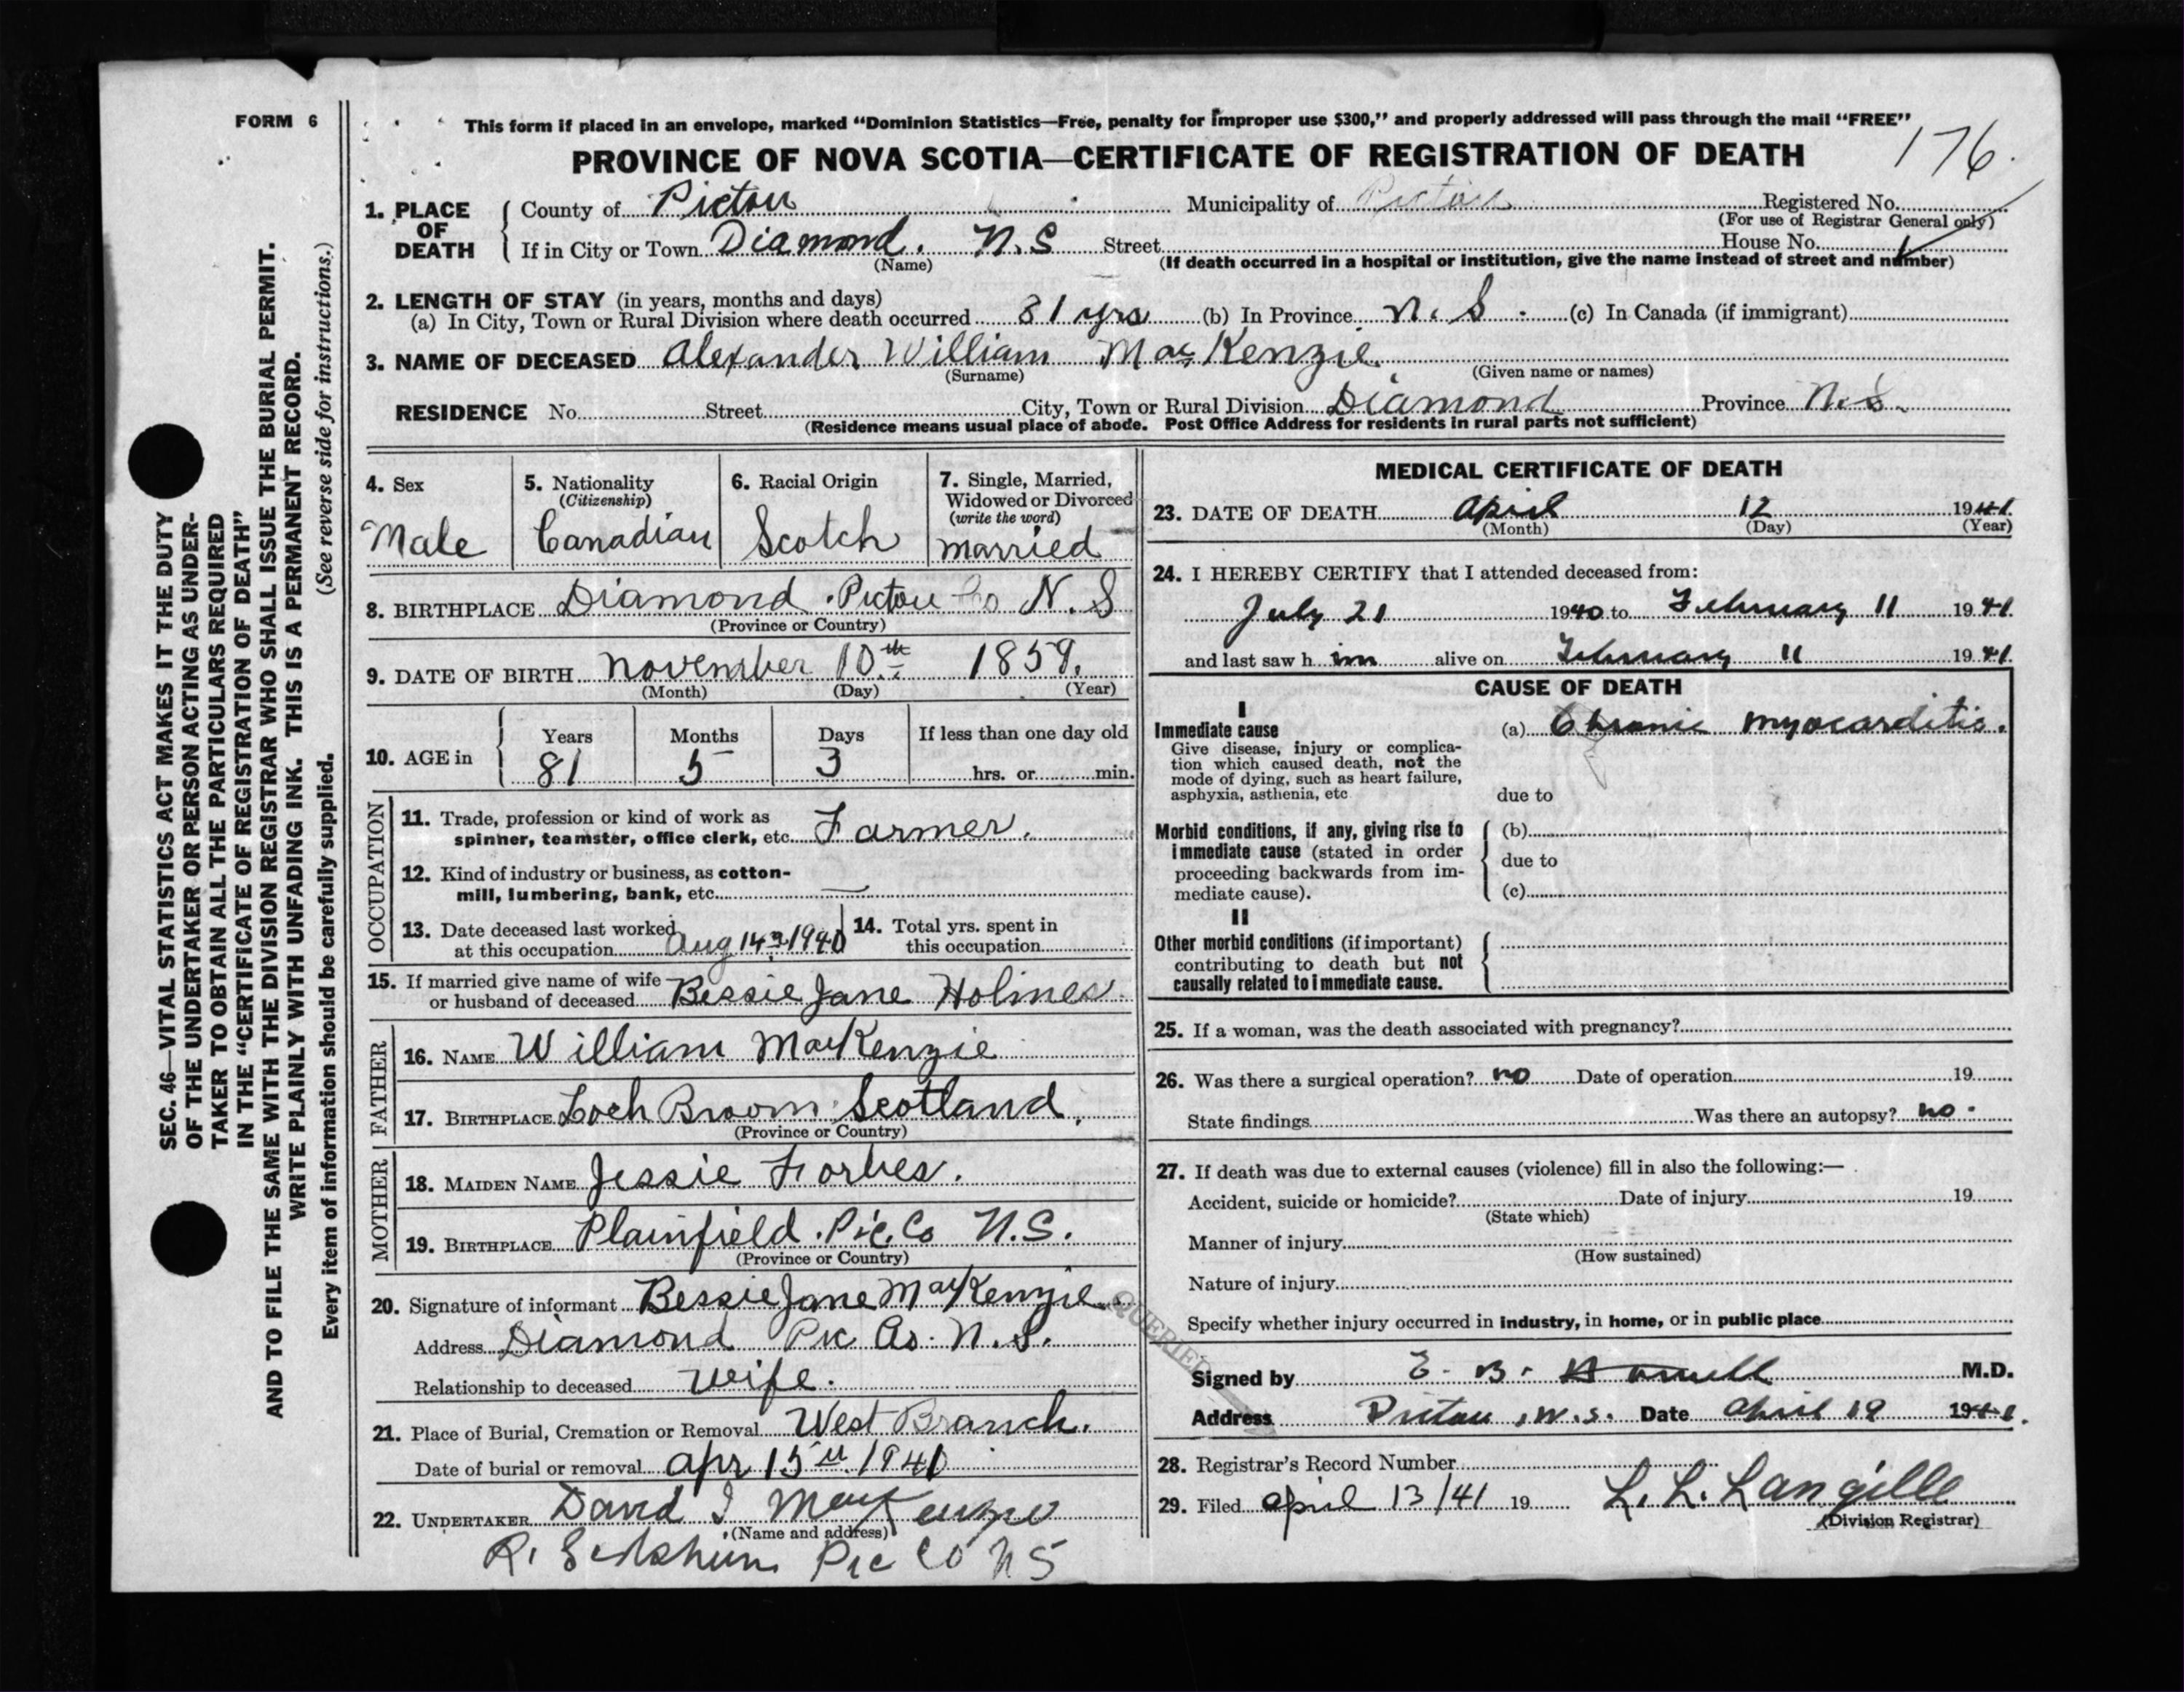 FORM 6
This form if placed in an envelope, marked “Dominion Statistics—Free, penalty for improper use $300,” and properly addressed will pass through the mail “FREE”
PROVINCE OF NOVA SCOTIA—CERTIFICATE OF REGISTRATION OF DEATH
176.
1. PLACE OF DEATH
County of Pictou Municipality of Pictou Registered No.
(For use of Registrar General only)
If in City or Town Diamond. N.S Street House No.
(Name) (If death occurred in a hospital or institution, give the name instead of street and number)
2. LENGTH OF STAY (in years, months and days)
(a) In City, Town or Rural Division where death occurred 81 yrs (b) In Province N.S. (c) In Canada (if immigrant)
3. NAME OF DECEASED Alexander William MacKenzie.
(Surname) (Given name or names)
RESIDENCE No. Street City, Town or Rural Division Diamond Province N.S.
(Residence means usual place of abode. Post Office Address for residents in rural parts not sufficient)
4. Sex
Male
5. Nationality
(Citizenship)
Canadian
6. Racial Origin
Scotch
7. Single, Married,
Widowed or Divorced
(write the word)
married
8. BIRTHPLACE Diamond. Pictou Co N.S
(Province or Country)
9. DATE OF BIRTH November 10th 1859.
(Month) (Day) (Year)
10. AGE in
Years Months Days If less than one day old
81 5 3 hrs. or min.
OCCUPATION
11. Trade, profession or kind of work as
spinner, teamster, office clerk, etc. Farmer.
12. Kind of industry or business, as cotton-
mill, lumbering, bank, etc. —
13. Date deceased last worked
at this occupation Aug 14 1940
14. Total yrs. spent in
this occupation
15. If married give name of wife
or husband of deceased Bessie Jane Holmes.
FATHER
16. NAME William MacKenzie
17. BIRTHPLACE Loch Broom Scotland.
(Province or Country)
MOTHER
18. MAIDEN NAME Jessie Forbes.
19. BIRTHPLACE Plainfield. Pic. Co N.S.
(Province or Country)
20. Signature of informant Bessie Jane MacKenzie
Address Diamond Pic Co. N.S.
Relationship to deceased wife.
21. Place of Burial, Cremation or Removal West Branch.
Date of burial or removal apr 15th 1940
22. UNDERTAKER David I MacKenzie
(Name and address)
R. Pic Co NS
MEDICAL CERTIFICATE OF DEATH
23. DATE OF DEATH April 12 1941
(Month) (Day) (Year)
24. I HEREBY CERTIFY that I attended deceased from:
July 21 1940 to February 11 1941
and last saw him alive on February 11 1941
CAUSE OF DEATH
I
Immediate cause
Give disease, injury or complica-
tion which caused death, not the
mode of dying, such as heart failure,
asphyxia, asthenia, etc
(a) Chronic myocarditis.
due to
Morbid conditions, if any, giving rise to
immediate cause (stated in order
proceeding backwards from im-
mediate cause).
(b)
due to
(c)
II
Other morbid conditions (if important)
contributing to death but not
causally related to immediate cause.
25. If a woman, was the death associated with pregnancy?
26. Was there a surgical operation? no Date of operation 19
State findings Was there an autopsy? no.
27. If death was due to external causes (violence) fill in also the following:—
Accident, suicide or homicide? Date of injury 19
(State which)
Manner of injury
(How sustained)
Nature of injury
Specify whether injury occurred in industry, in home, or in public place
QUERIED
Signed by E. B. M.D.
Address Pictou, N.S. Date April 19 1941.
28. Registrar's Record Number
29. Filed april 13/41 19 L. L. Langille
(Division Registrar)
SEC. 46—VITAL STATISTICS ACT MAKES IT THE DUTY
OF THE UNDERTAKER OR PERSON ACTING AS UNDER-
TAKER TO OBTAIN ALL THE PARTICULARS REQUIRED
IN THE “CERTIFICATE OF REGISTRATION OF DEATH”
AND TO FILE THE SAME WITH THE DIVISION REGISTRAR WHO SHALL ISSUE THE BURIAL PERMIT.
WRITE PLAINLY WITH UNFADING INK. THIS IS A PERMANENT RECORD.
Every item of information should be carefully supplied. (See reverse side for instructions.)